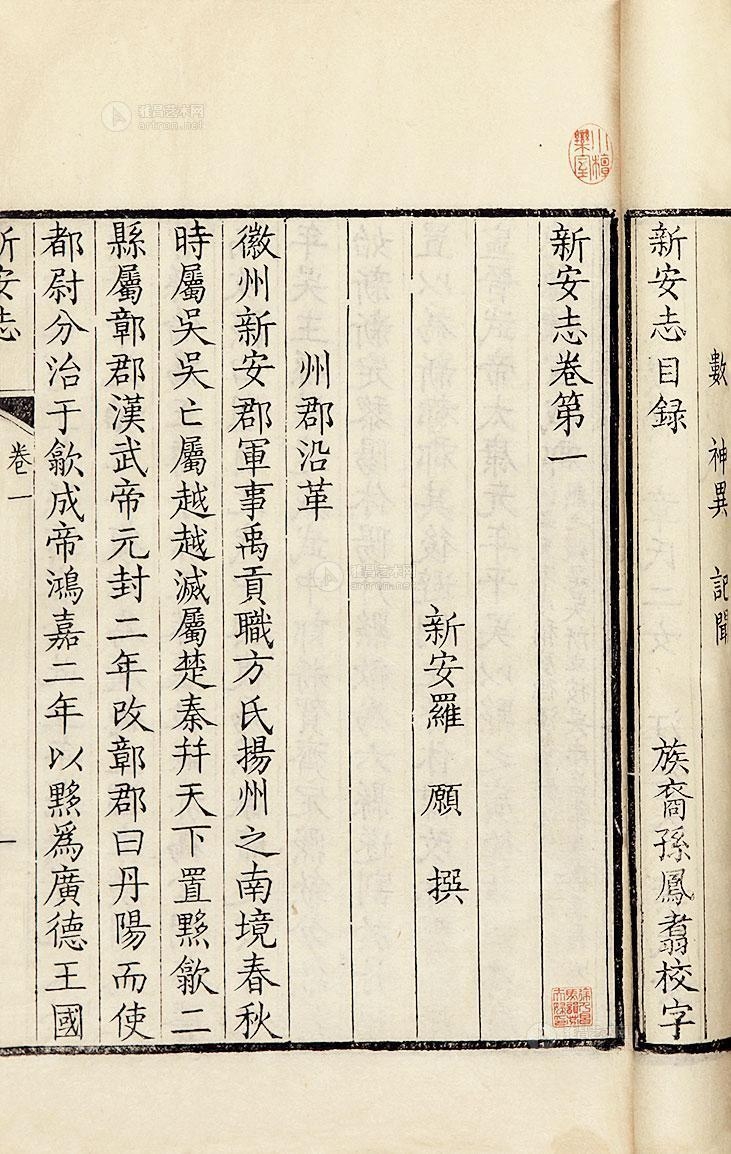 數 神異 記聞
新安志目録 族裔孫鳳翥校字
新安志卷第一
新安羅 願 撰
州郡沿革
徽州新安郡軍事禹貢職方氏揚州之南境春秋
時屬吳吳亡屬越越滅屬楚秦幷天下置黟歙二
縣屬鄣郡漢武帝元封二年改鄣郡曰丹陽而使
都尉分治于歙成帝鴻嘉二年以黟爲廣德王國
新安志
卷一
一
小檀欒室
雅昌艺术网
artron.net